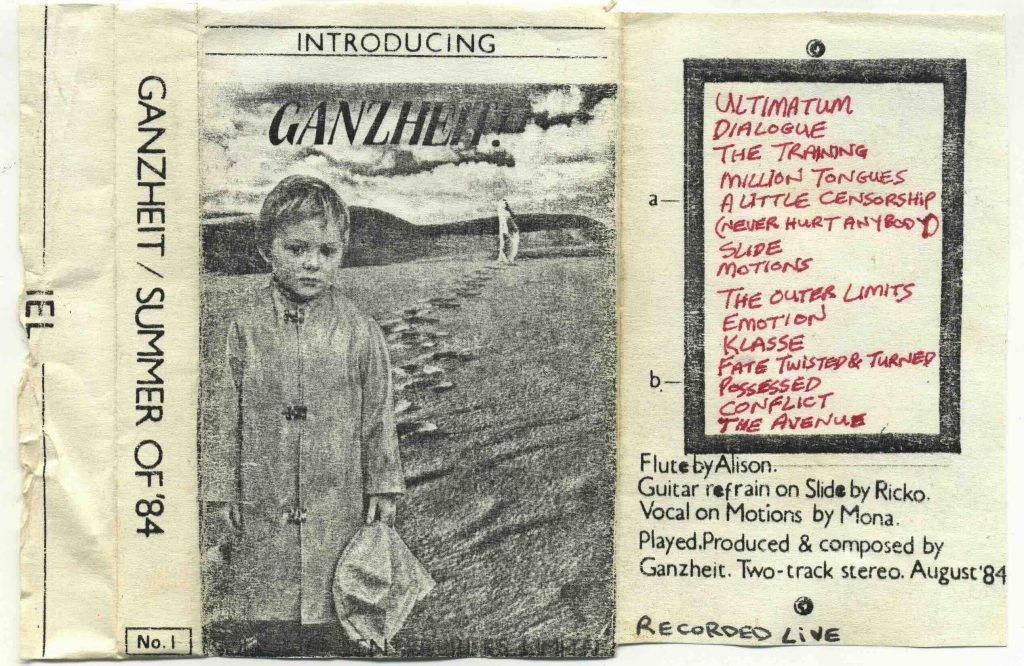 IEL
GANZHEIT / SUMMER OF '84
No. 1
INTRODUCING
GANZHEIT.
a—
ULTIMATUM
DIALOGUE
THE TRAINING
MILLION TONGUES
A LITTLE CENSORSHIP
(NEVER HURT ANYBODY)
SLIDE
MOTIONS
b—
THE OUTER LIMITS
EMOTION
KLASSE
FATE TWISTED & TURNED
POSSESSED
CONFLICT
THE AVENUE
Flute by Alison.
Guitar refrain on Slide by Ricko.
Vocal on Motions by Mona.
Played.Produced & composed by
Ganzheit. Two-track stereo. August '84
RECORDED LIVE